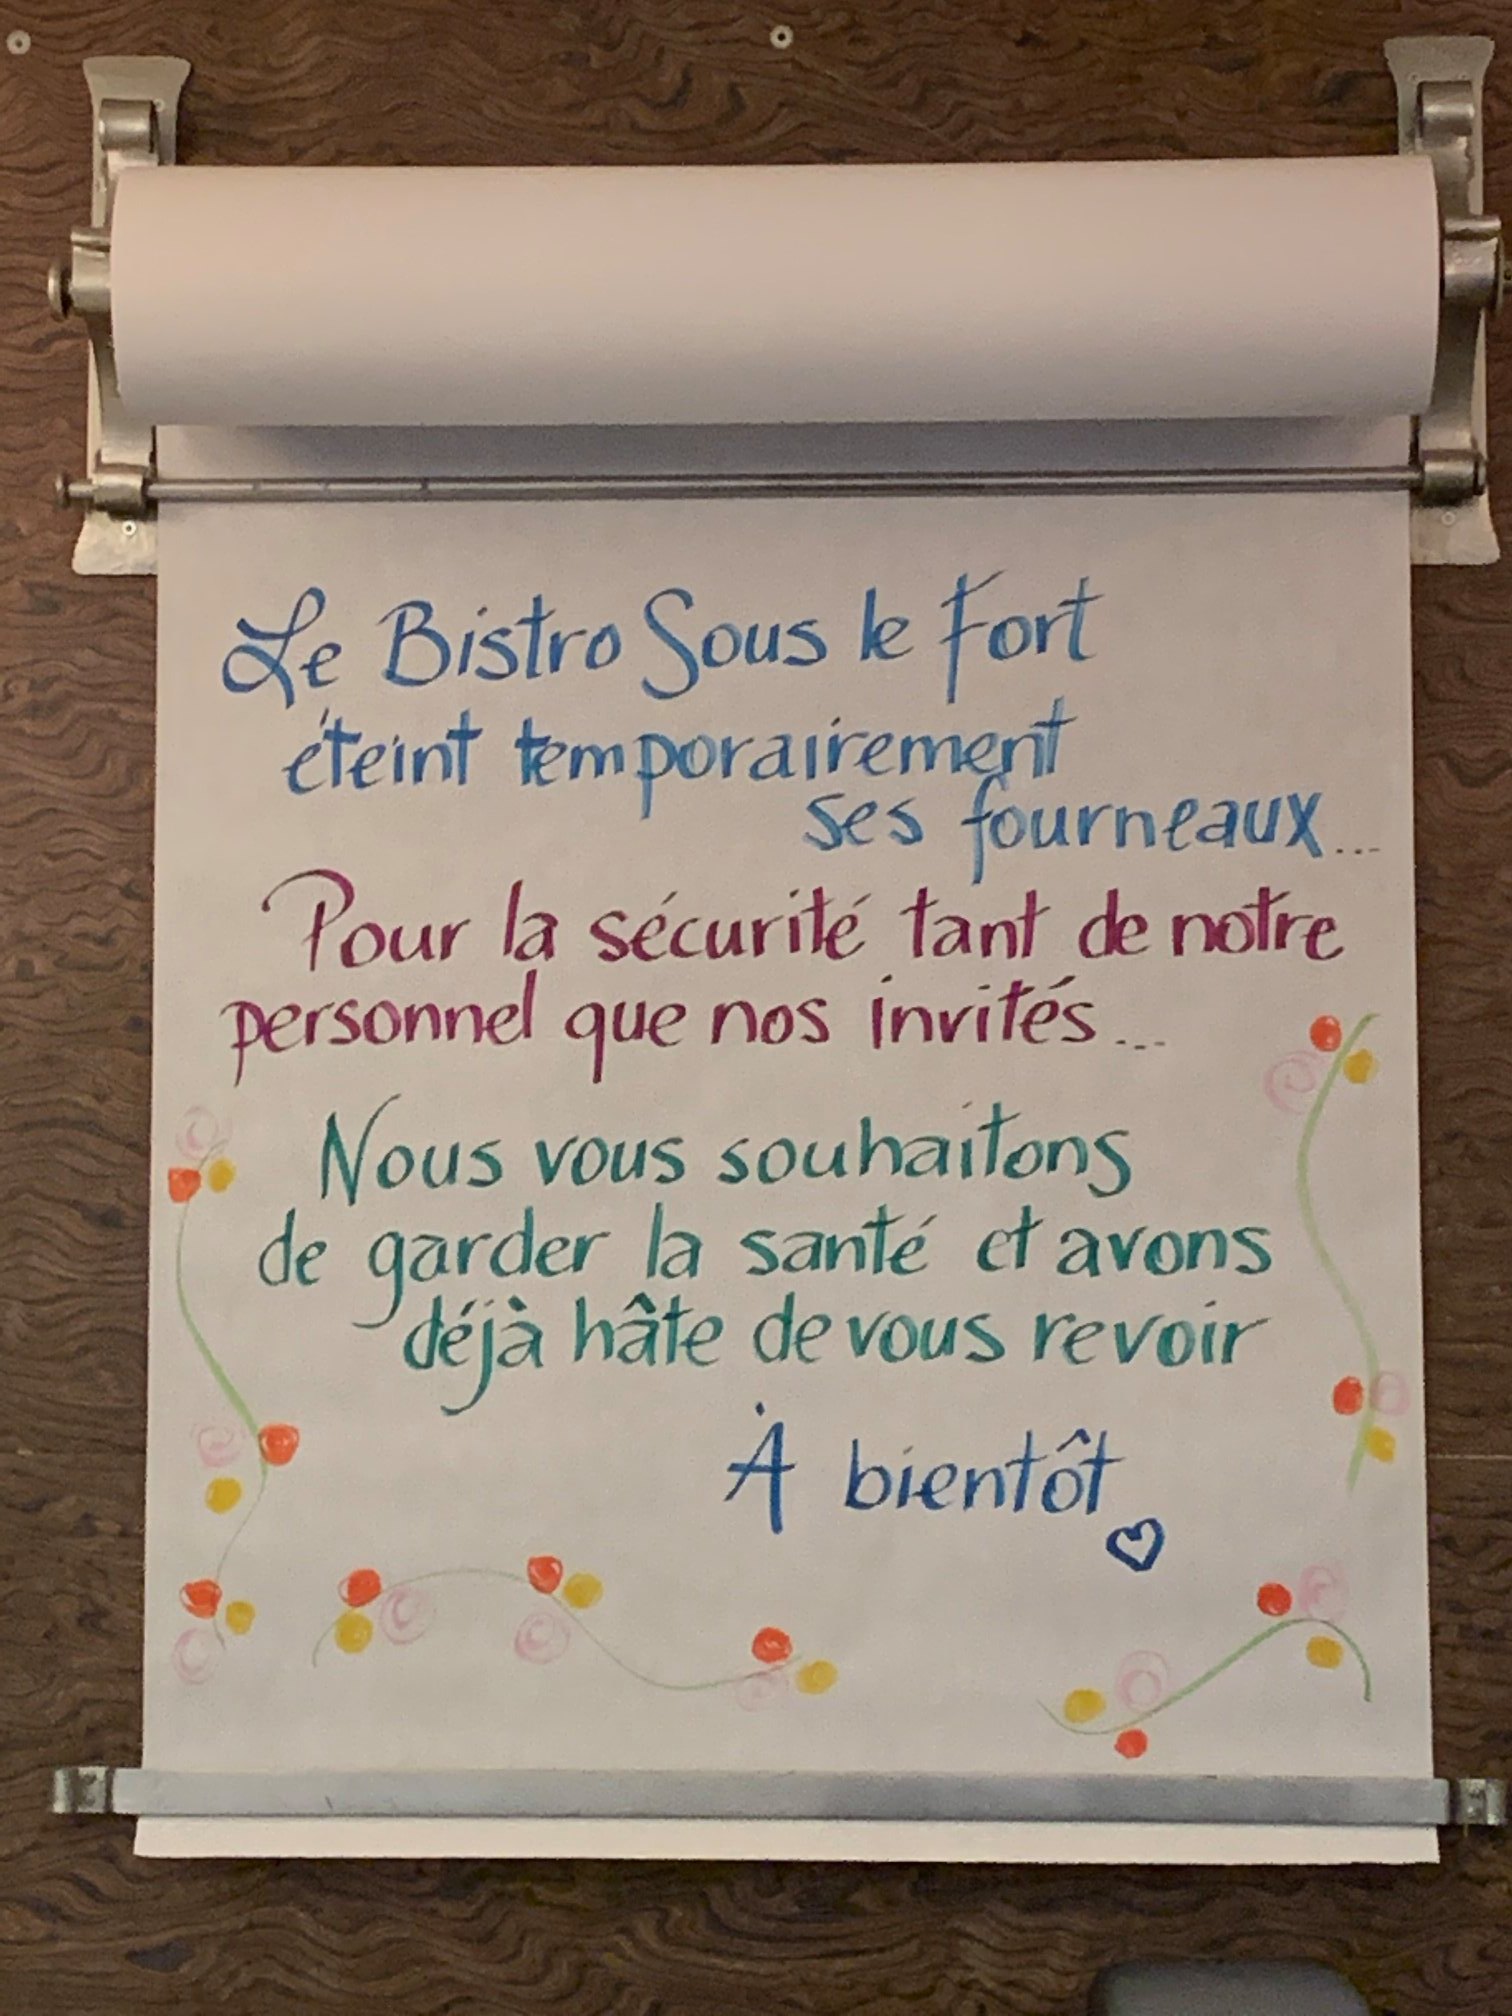 Le Bistro Sous le Fort
éteint temporairement
ses fourneaux...
Pour la sécurité tant de notre
personnel que nos invités...
Nous vous souhaitons
de garder la santé et avons
déjà hâte de vous revoir
À bientôt